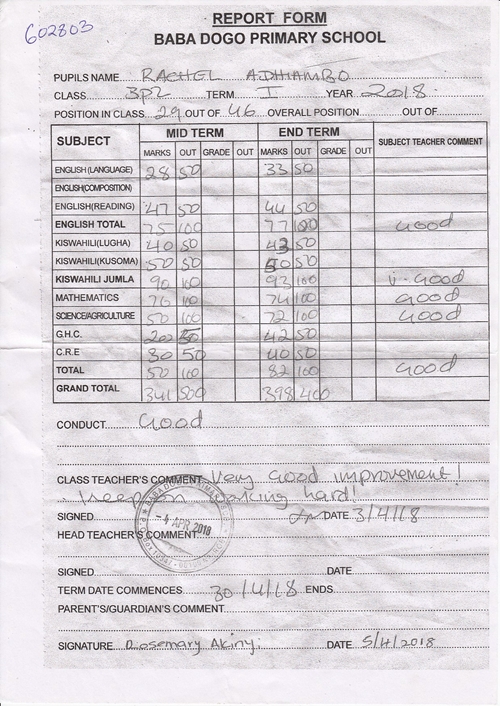 602803
REPORT FORM
BABA DOGO PRIMARY SCHOOL
PUPILS NAME RACHEL ADHIAMBO
CLASS 3P2 TERM I YEAR 2018
POSITION IN CLASS 29 OUT OF 46 OVERALL POSITION OUT OF
SUBJECT MID TERM END TERM SUBJECT TEACHER COMMENT
MARKS OUT GRADE OUT MARKS OUT GRADE OUT
ENGLISH(LANGUAGE) 28 50 33 50
ENGLISH(COMPOSITION)
ENGLISH(READING) 47 50 44 50
ENGLISH TOTAL 75 100 77 100 Good
KISWAHILI(LUGHA) 40 50 43 50
KISWAHILI(KUSOMA) 50 50 50 50
KISWAHILI JUMLA 90 100 93 100 V. Good
MATHEMATICS 76 100 74 100 Good
SCIENCE/AGRICULTURE 50 100 72 100 Good
G.H.C. 20 50 42 50
C.R.E 30 50 40 50
TOTAL 50 100 82 100 Good
GRAND TOTAL 341 500 398 400
CONDUCT Good
CLASS TEACHER'S COMMENT Very Good improvement!
Keep on working hard!
SIGNED DATE 3/4/18
- 4 APR 2018
HEAD TEACHER'S COMMENT
SIGNED DATE
TERM DATE COMMENCES 30/4/18 ENDS
PARENT'S/GUARDIAN'S COMMENT
SIGNATURE Rosemary Akinyi DATE 5/4/2018